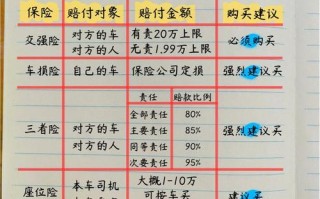 保险 赔付对象 赔付金额 购买建议
交强险 对方的车 对方的人 有责20万上限 无责1.99万上限 必须购买
车损险 自己的车 保险公司定损 强烈建议买
三者险 对方的车 对方的人 强烈建议买
责任 赔款比例
全部责任 80%
主要责任 85%
同等责任 90%
次要责任 95%
座位险 本车司机 大概1-10万 建议买
可按车买